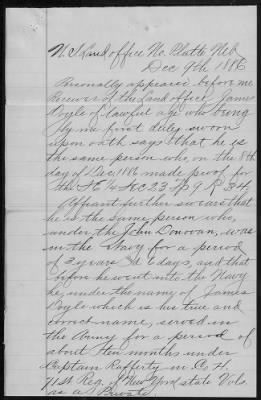 U.S. Land office No. Platte Neb
Dec 9th 1886
Personally appeared before me
Receiver of the Land office James
Doyle of lawful age who being
by me first duly sworn
upon oath says that he is
the same person who, on the 8th
day of Dec 1886 made proof for
the SE 1/4 Sec 23 Tp 9 R 34
Affiant further swears that
he is the same person who,
under the John Donovan, was
in the Navy for a period
of 3 years & 6 days, and that
before he went into the Navy
he, under the name of James
Doyle which is his true and
correct name, served in
the Army for a period of
about ten months under
Captain Rafferty in Co H,
71st Reg. of New York state Vols.
as a Private